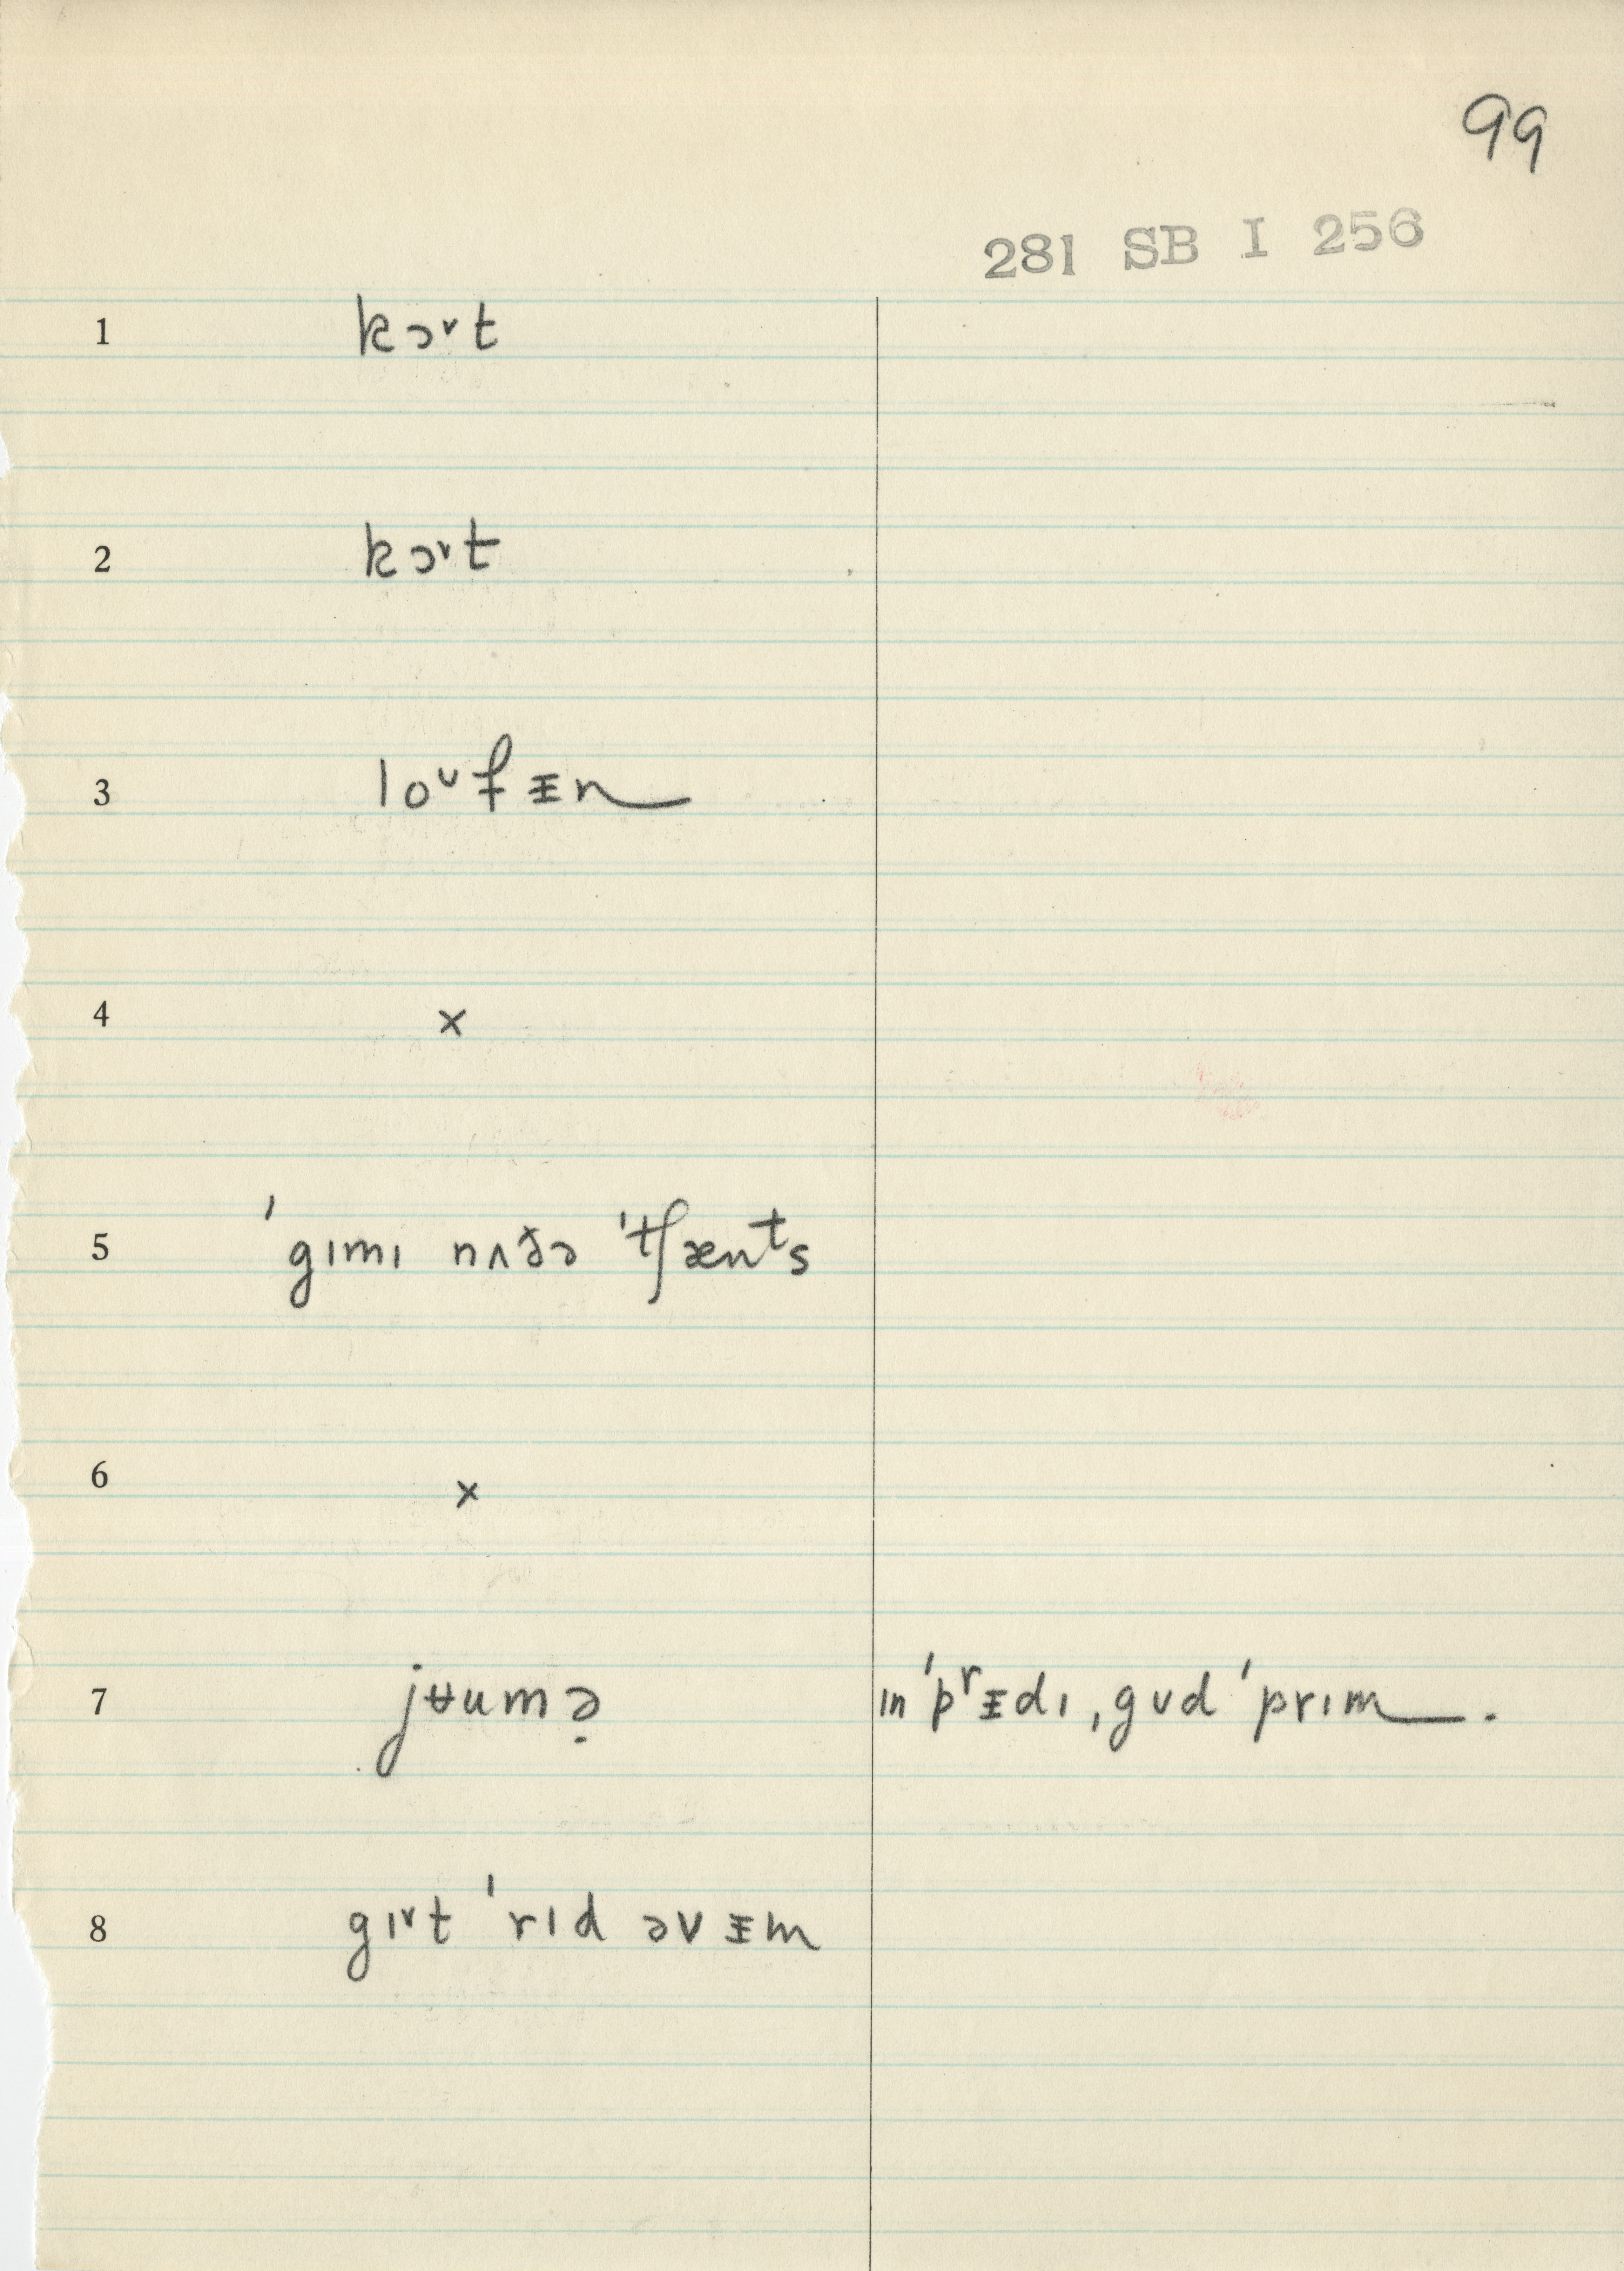 99
281 SB I 256
1 kɔˇt
2 kɔˇt
3 loᶸfᵻn
4 x
5 ˈgɪmɪ nʌðə ˈtʃænᵗs
6 x
7 jʉumə̣ ɪn ˈpʳᵻdɪ, gʊd ˈprɪm.
8 gɪˇt ˈrɪd əvᵻm